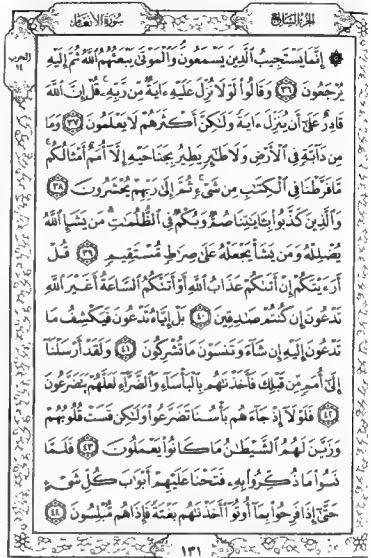 سورة الأنعام
الجزء السابع
الحزب ١٤
۞ إِنَّمَا يَسْتَجِيبُ ٱلَّذِينَ يَسْمَعُونَ وَٱلْمَوْتَىٰ يَبْعَثُهُمُ ٱللَّهُ ثُمَّ إِلَيْهِ
يُرْجَعُونَ ٣٦ وَقَالُوا۟ لَوْلَا نُزِّلَ عَلَيْهِ ءَايَةٌ مِّن رَّبِّهِۦ قُلْ إِنَّ ٱللَّهَ
قَادِرٌ عَلَىٰٓ أَن يُنَزِّلَ ءَايَةً وَلَـٰكِنَّ أَكْثَرَهُمْ لَا يَعْلَمُونَ ٣٧ وَمَا
مِن دَآبَّةٍ فِى ٱلْأَرْضِ وَلَا طَـٰٓئِرٍ يَطِيرُ بِجَنَاحَيْهِ إِلَّآ أُمَمٌ أَمْثَالُكُم
مَّا فَرَّطْنَا فِى ٱلْكِتَـٰبِ مِن شَىْءٍ ثُمَّ إِلَىٰ رَبِّهِمْ يُحْشَرُونَ ٣٨
وَٱلَّذِينَ كَذَّبُوا۟ بِـَٔايَـٰتِنَا صُمٌّ وَبُكْمٌ فِى ٱلظُّلُمَـٰتِ مَن يَشَإِ ٱللَّهُ
يُضْلِلْهُ وَمَن يَشَأْ يَجْعَلْهُ عَلَىٰ صِرَٰطٍ مُّسْتَقِيمٍ ٣٩ قُلْ
أَرَءَيْتَكُمْ إِنْ أَتَىٰكُمْ عَذَابُ ٱللَّهِ أَوْ أَتَتْكُمُ ٱلسَّاعَةُ أَغَيْرَ ٱللَّهِ
تَدْعُونَ إِن كُنتُمْ صَـٰدِقِينَ ٤٠ بَلْ إِيَّاهُ تَدْعُونَ فَيَكْشِفُ مَا
تَدْعُونَ إِلَيْهِ إِن شَآءَ وَتَنسَوْنَ مَا تُشْرِكُونَ ٤١ وَلَقَدْ أَرْسَلْنَآ
إِلَىٰٓ أُمَمٍ مِّن قَبْلِكَ فَأَخَذْنَـٰهُم بِٱلْبَأْسَآءِ وَٱلضَّرَّآءِ لَعَلَّهُمْ يَتَضَرَّعُونَ
٤٢ فَلَوْلَآ إِذْ جَآءَهُم بَأْسُنَا تَضَرَّعُوا۟ وَلَـٰكِن قَسَتْ قُلُوبُهُمْ
وَزَيَّنَ لَهُمُ ٱلشَّيْطَـٰنُ مَا كَانُوا۟ يَعْمَلُونَ ٤٣ فَلَمَّا
نَسُوا۟ مَا ذُكِّرُوا۟ بِهِۦ فَتَحْنَا عَلَيْهِمْ أَبْوَٰبَ كُلِّ شَىْءٍ
حَتَّىٰٓ إِذَا فَرِحُوا۟ بِمَآ أُوتُوٓا۟ أَخَذْنَـٰهُم بَغْتَةً فَإِذَا هُم مُّبْلِسُونَ ٤٤
١٣١